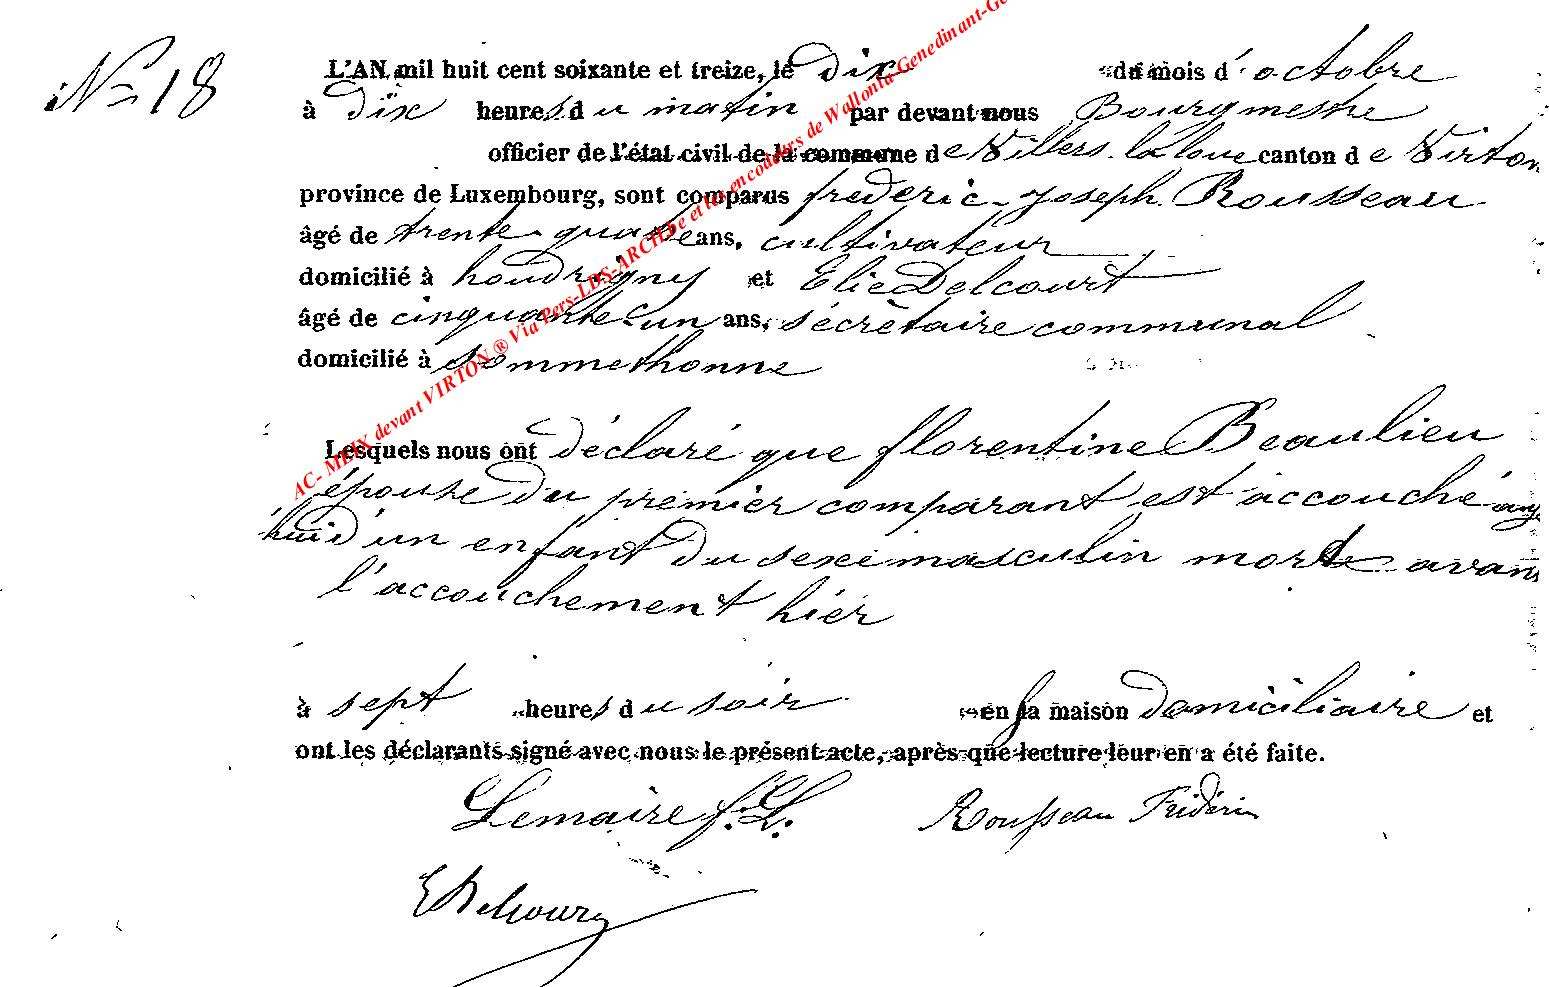 N° 18
L'AN mil huit cent soixante et treize, le dix du mois d'octobre
à dix heures du matin par devant nous Bourgmestre
officier de l'état civil de la commune de Villers-la-loue canton de Virton
province de Luxembourg, sont comparus frederic-joseph Rousseau
âgé de trente-quatre ans, cultivateur
domicilié à houdrigny et Elie Delcourt
âgé de cinquante-un ans, secrètaire communal
domicilié à Sommethonne
Lesquels nous ont déclaré que florentine Beaulieu
épouse du premier comparant est accouché
d'un enfant du sexe masculin morte avant
l'accouchement hier
à sept heures du soir en sa maison domiciliaire et
ont les déclarants signé avec nous le présent acte, après que lecture leur en a été faite.
Lemaire f. L. Rousseau Fridéric
E Delcourt
AC- MEIX devant VIRTON ® Via Pers-LDS-ARCHBe et les encodeurs de Wallonia Genedinant-Ge